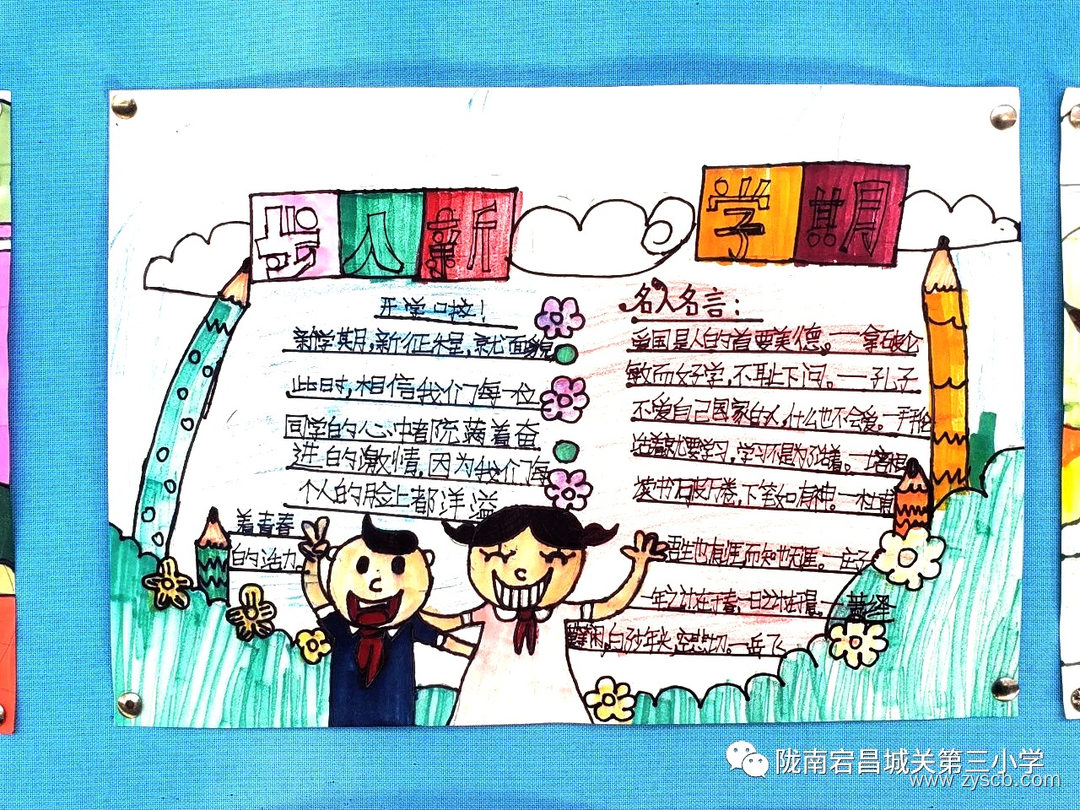 步入新学期
开学口接！
新学期，新征程，新面貌
此时，相信我们每一位
同学的心中都充满着奋
进的激情，因为我们每
个人的脸上都洋溢
着青春
的活力
名人名言：
爱国是人的首要美德。一拿破仑
敏而好学，不耻下问。一孔子
不爱自己国家的人，什么也不会爱。
活着就要学习，学习不是为了活着。一培根
读书破万卷，下笔如有神。一杜甫
吾生也有涯而知也无涯。一庄子
一年之计在于春，一日之计在于晨。一萧绎
白了少年头，空悲切。一岳飞
陇南宕昌城关第三小学
www.zyscb.com